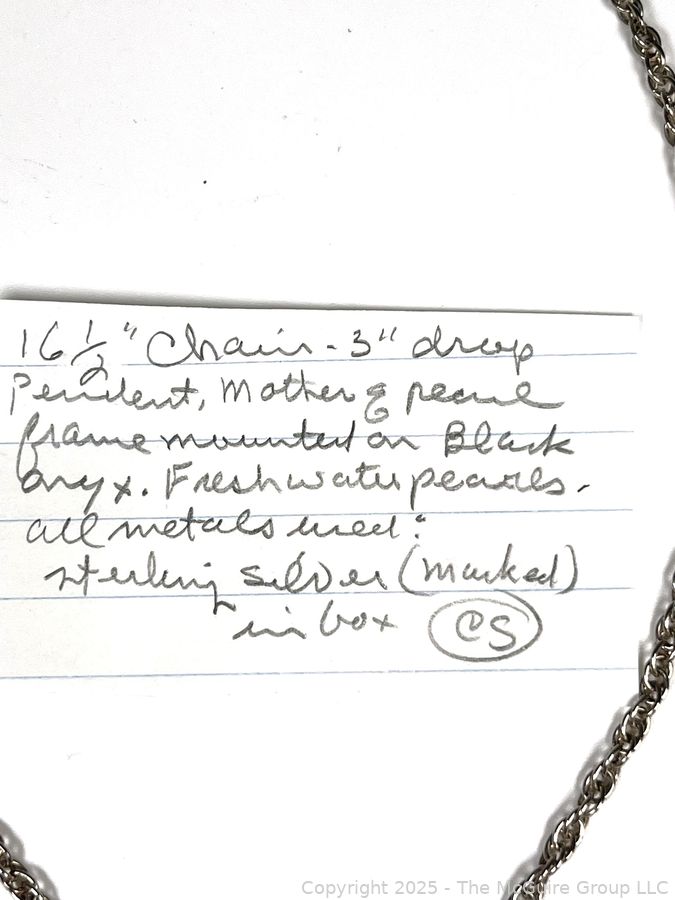 16 1/2" Chain - 3" drop
Pendent, Mother of pearl
frame mounted on Black
onyx. Freshwater pearls.
all metals used:
sterling silver (marked)
in box CS
Copyright 2025 - The McGuire Group LLC